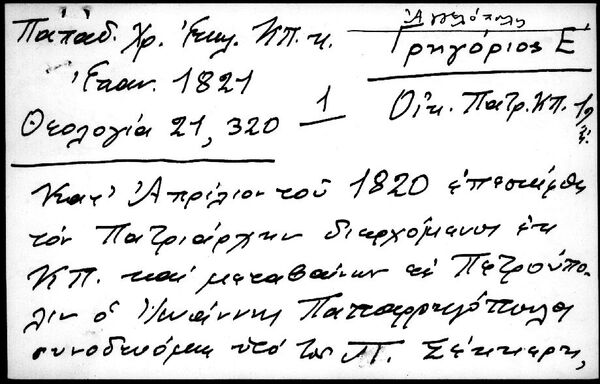 Παπαδ. Χρ. Ἐκκλ. ΚΠ. κ.
Ἐπαν. 1821
Θεολογία 21, 320 — 1
Ἀγγελόπουλος
Γρηγόριος Ε΄
Οἰκ. Πατρ. ΚΠ. 19
Κατ' Ἀπρίλιον τοῦ 1820 ἐπεσκέφθη
τόν Πατριάρχην διερχόμενος ἐκ
ΚΠ. καί μεταβαίνων εἰς Πετρούπο-
λιν ὁ Ἰωάννης Παπαρρηγόπουλος
συνοδευόμενος ὑπό τοῦ Π. Σέκερη,